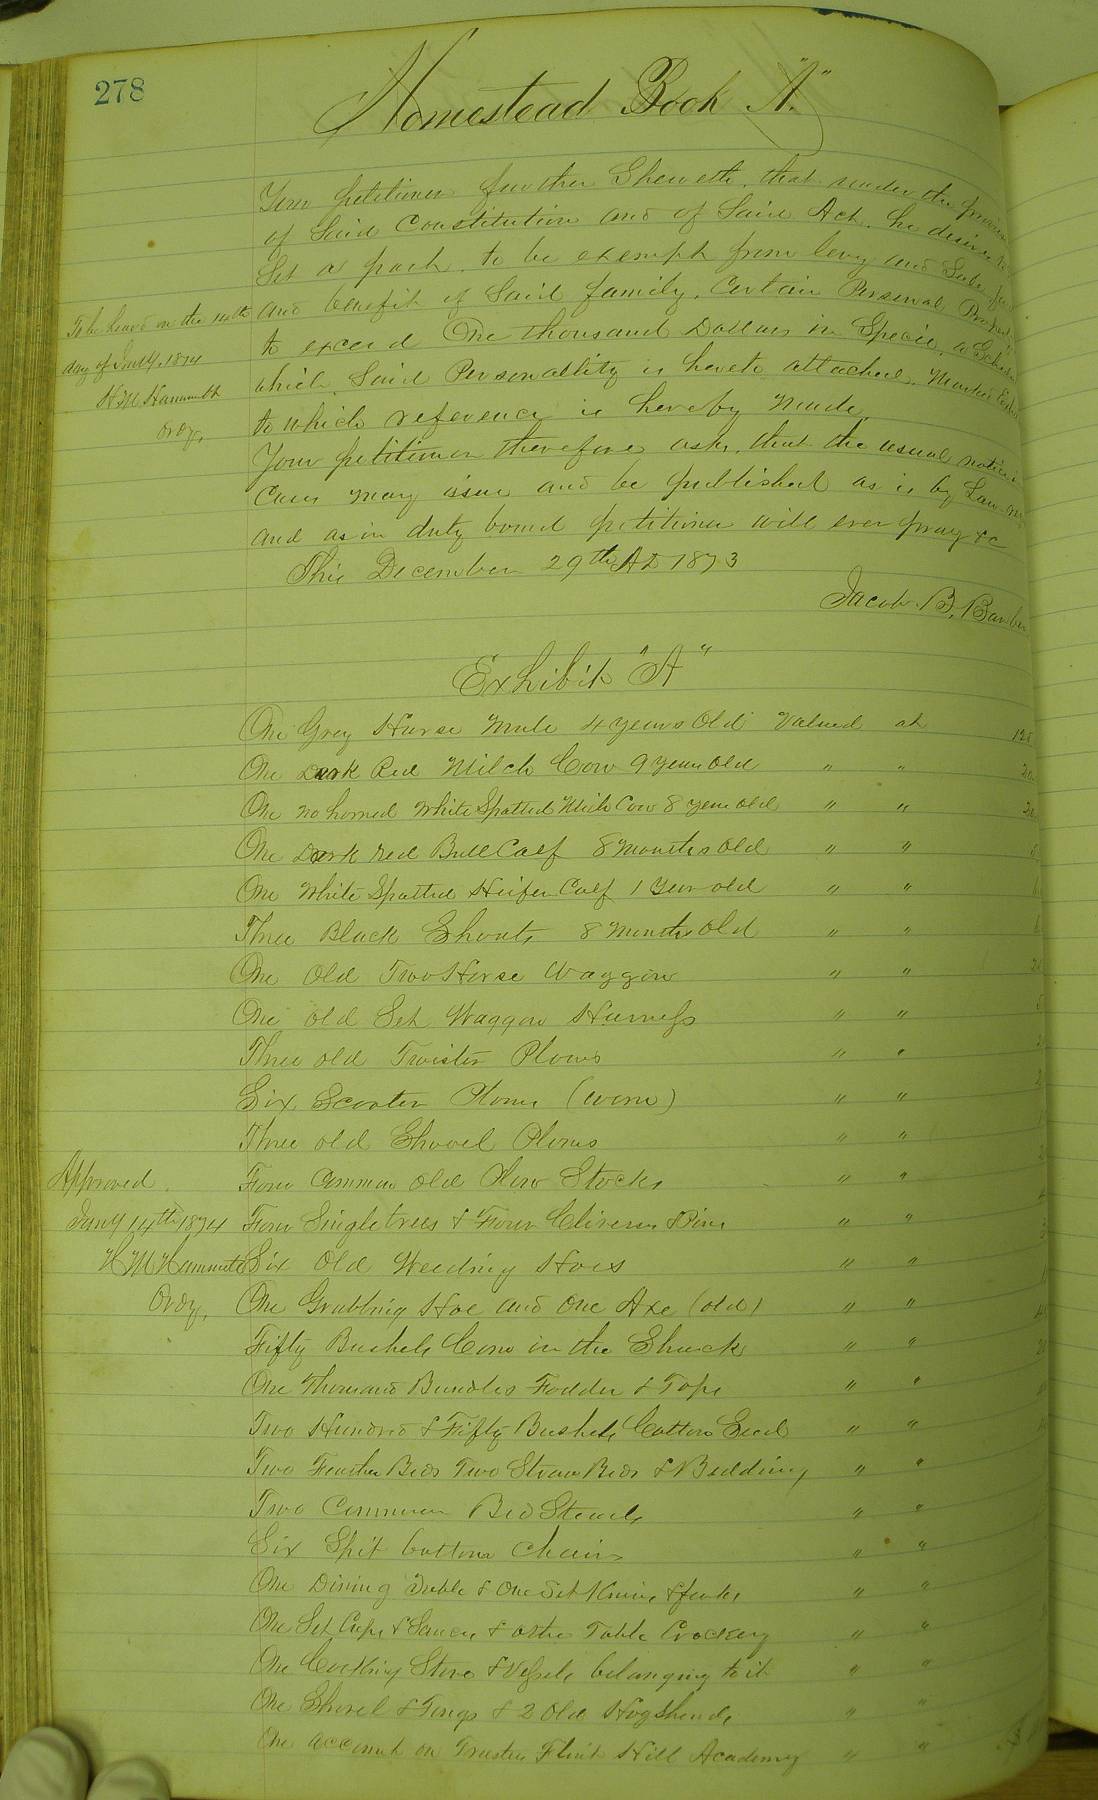 278
Homestead Book "A."
Your petitioner further Sheweth, that under the
of Said Constitution and of Said Act, he desires
Set a part, to be exempt from levy and Sale
and benefit of Said family, Certain Personal
to exceed One thousand Dollars in Specie, a
which Said Personallity is hereto attached, Marked
to which reference is hereby Made,
Your petitioner therefore asks, that the usual notice
Cases may issue and be published as is by Law
and as in duty bound petitioner will ever pray &c
This December 29th AD 1873
Jacob B. Barber
To be heard on the 14th
day of Jany, 1874
H M Hammett
Ordy,
Exhibit "A"
One Grey Horse Mule 4 years Old Valued at
One Dark Red Milch Cow 9 years old " "
One no horned White Spotted Milch Cow 8 years old " "
One Dark red Bull Calf 8 Months old " "
One White Spotted Heifer Calf 1 Year old " "
Three Black Shoats 8 Months Old " "
One Old Two Horse Waggon " "
One old Set Waggon Harness " "
Three old Twister Plows " "
Six Scooter Plows (worn) " "
Three old Shovel Plows " "
Four Common old Plow Stocks " "
Four Singletrees & Four Clivises & Pins " "
Six Old Weeding Hoes " "
One Grubbing Hoe and One Axe (old) " "
Fifty Bushels Corn in the Shuck " "
One thousand Bundles Fodder & Tops " "
Two Hundred & Fifty Bushels Cotton Seed " "
Two Feather Beds Two Straw Beds & Bedding " "
Two Common Bed Steads " "
Six Split bottom Chairs " "
One Dining Table & One Set Knives & forks " "
One Set Cups & Saucers & other Table Crockery " "
One Cooking Stove & Vessels belonging to it " "
One Shovel & Tongs & 2 Old Hogsheads " "
One account on Trustees Flint Hill Academy " "
Approved
Jany 14th 1874
H M Hammett
Ordy,